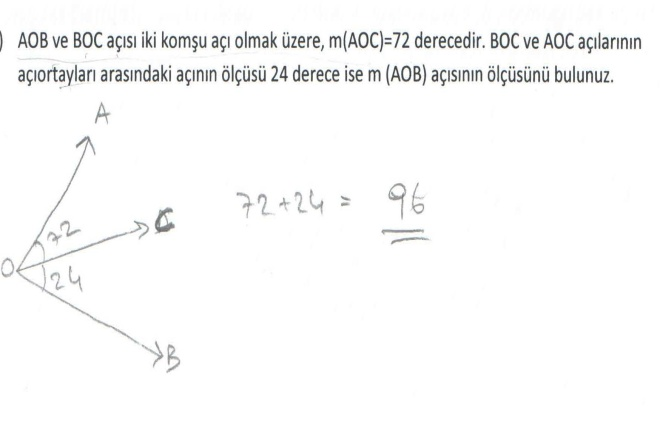 ) AOB ve BOC açısı iki komşu açı olmak üzere, m(AOC)=72 derecedir. BOC ve AOC açılarının
açıortayları arasındaki açının ölçüsü 24 derece ise m (AOB) açısının ölçüsünü bulunuz.
A
72+24 = 96
C
72
O
24
B